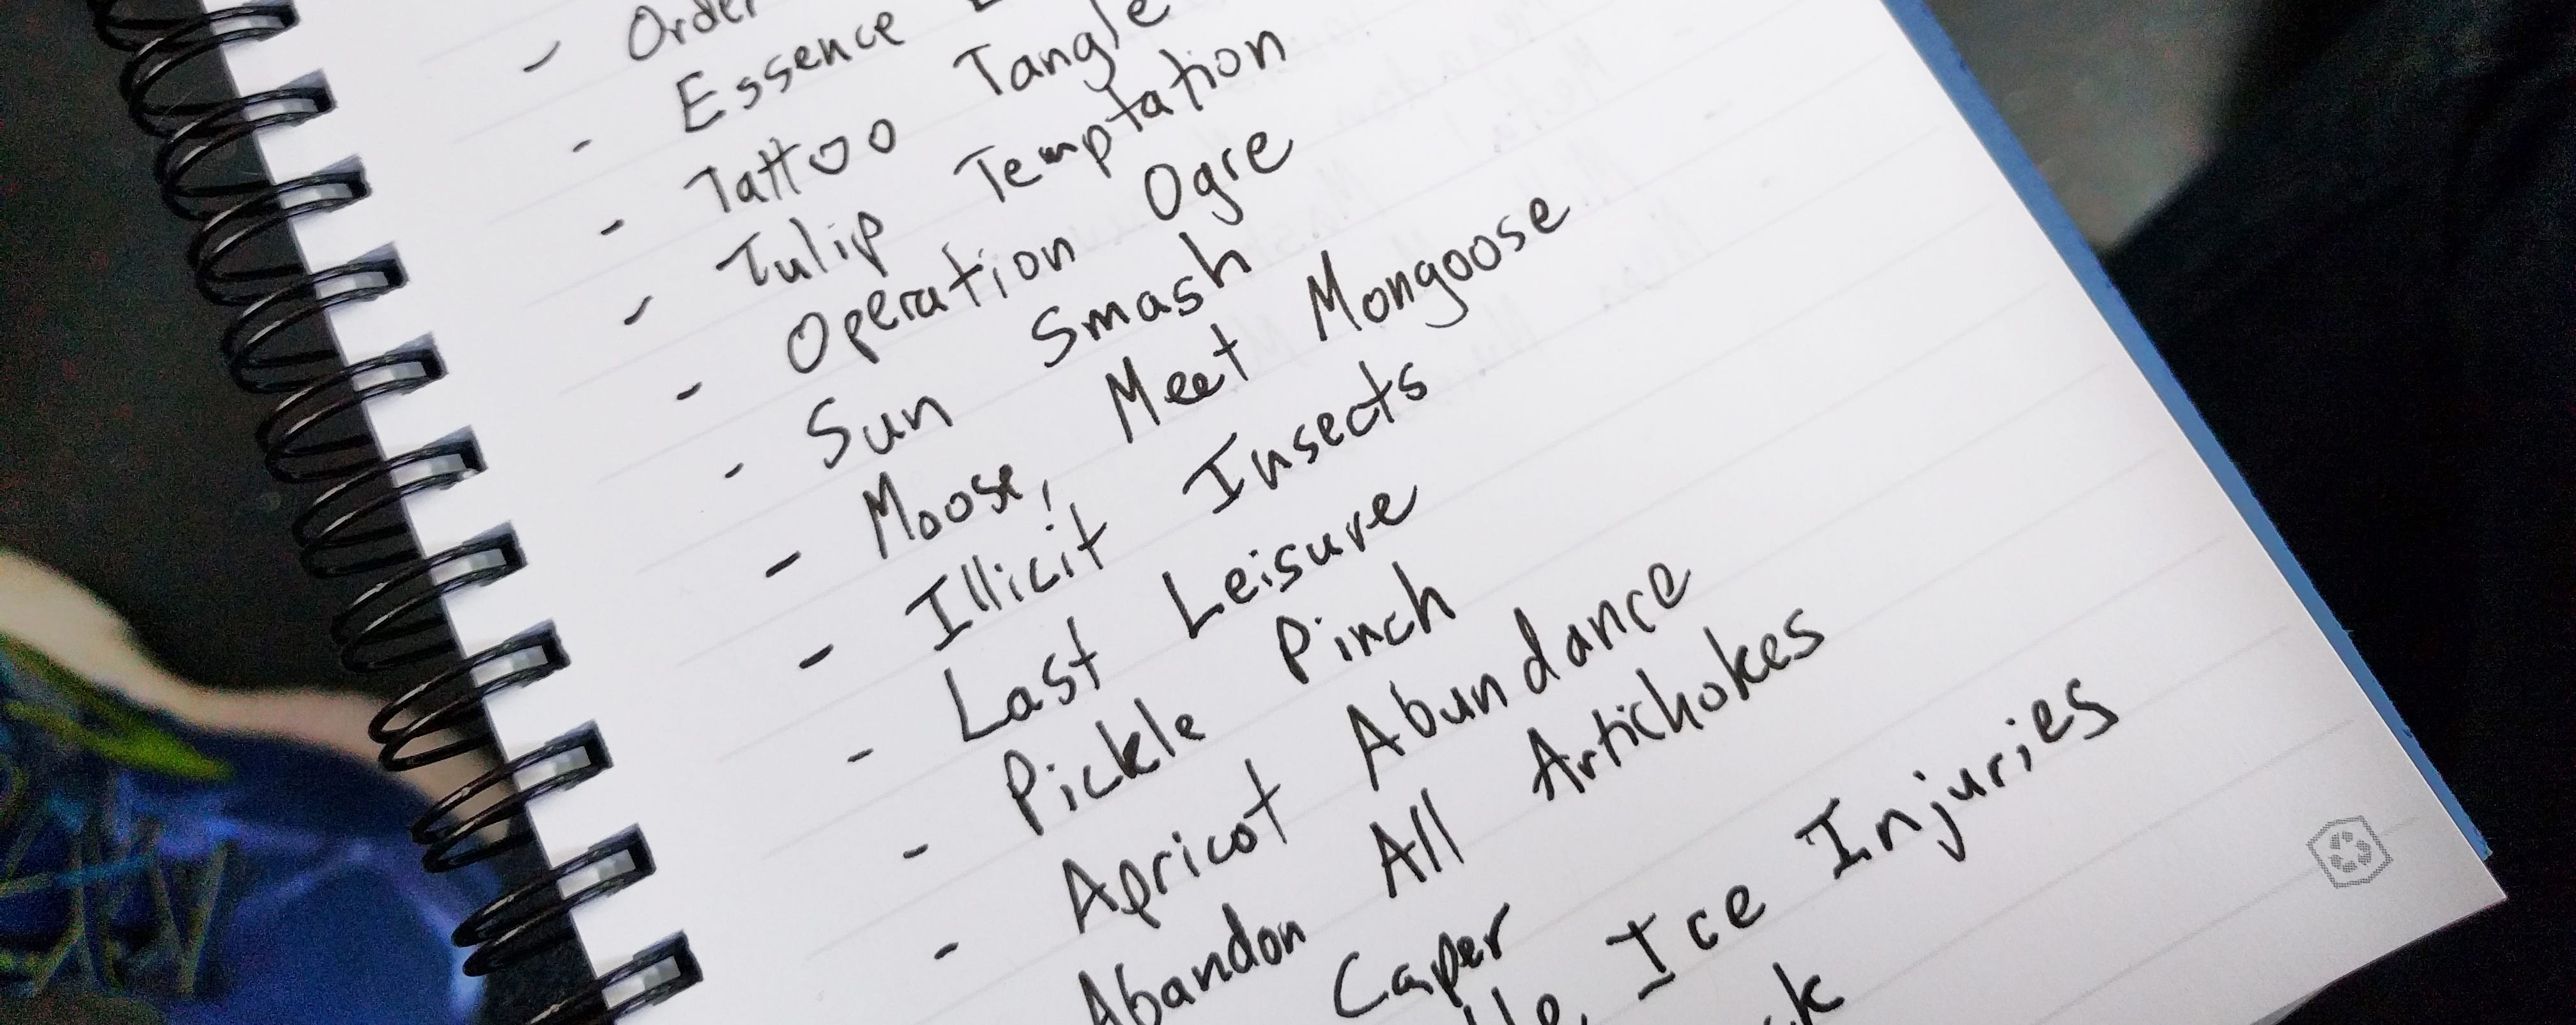 - Order
- Essence
- Tattoo Tangle
- Tulip Temptation
- Operation Ogre
- Sun Smash
- Moose, Meet Mongoose
- Illicit Insects
- Last Leisure
- Pickle Pinch
- Apricot Abundance
Abandon All Artichokes
Caper
Ice Injuries